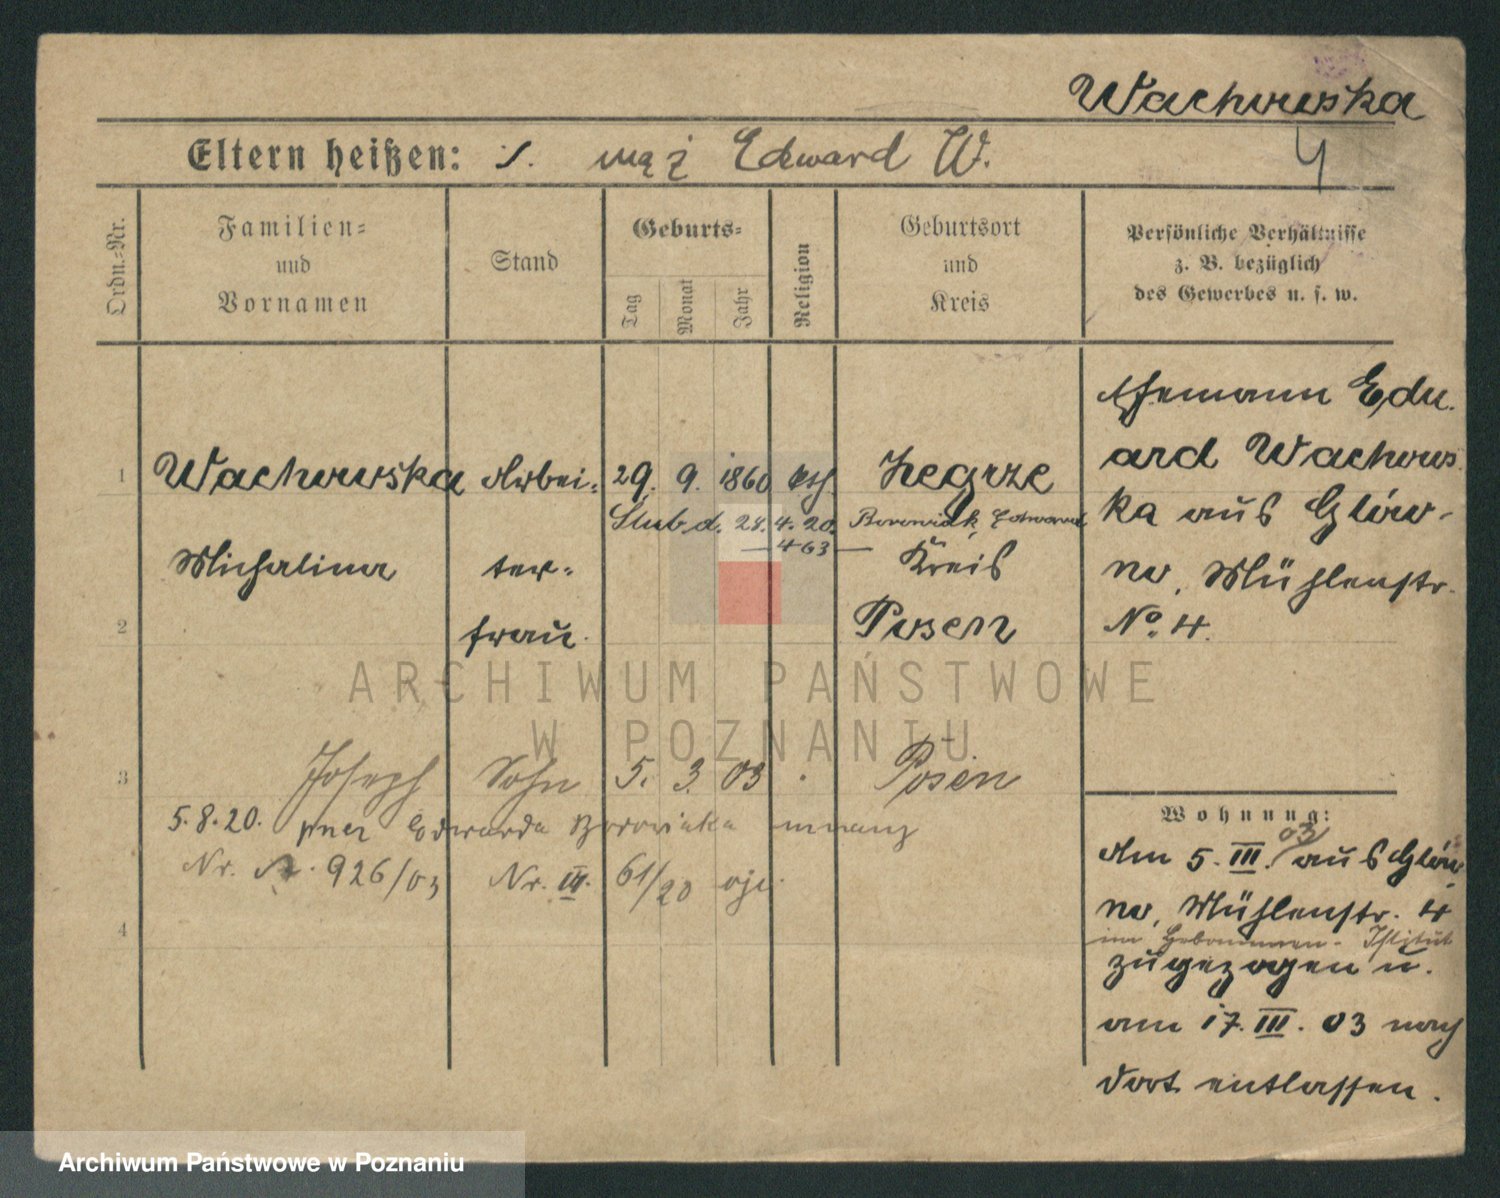 Wachowska
4
Eltern heißen: mąż Edward W.
Ordn.-Nr.
Familien-
und
Vornamen
Stand
Geburts-
Tag
Monat
Jahr
Religion
Geburtsort
und
Kreis
Persönliche Verhältnisse
z. B. bezüglich
des Gewerbes u. s. w.
1
Wachowska Arbei- 29. 9. 1860 kth. Zegrze
Slub. d. 28.4.20. Borowiak, Edward
463
Michalina ter- Kreis
2
frau. Posen
Ehemann Edu-
ard Wachows-
ka aus Glów-
no, Mühlenstr.
No. 4.
3
Joseph Sohn 5. 3. 03 Posen
5.8.20. przez Edwarda Borowiaka uznany
Nr. 926/03 Nr. III. 61/20
4
Wohnung:
Am 5. III. 03 aus Glów-
no, Mühlenstr. 4
im Hebammen-Institut
zugezogen u.
am 17. III. 03 nach
dort entlassen.
ARCHIWUM PAŃSTWOWE
W POZNANIU
Archiwum Państwowe w Poznaniu